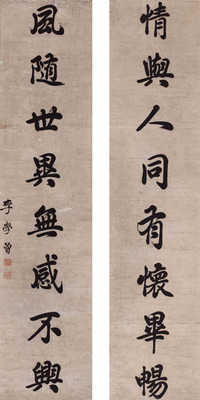 情與人同有懷畢暢
風隨世異無感不興
李學曾